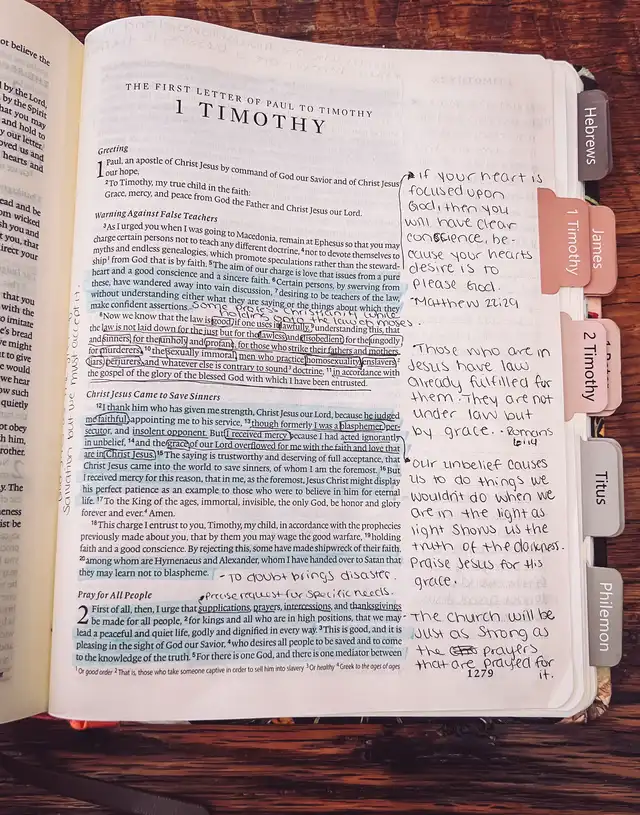 ot believe the
d by the Lord,
by the Spirit
that you may
and hold to
y our letter.
oved us and
hearts and
ead and be
om wicked
sh you and
t you, that
irect your
that you
with the
o imitate
e's bread
ve might
t to give
we would
we hear
ow such
quietly
ot obey
th him,
rother.
y. The
eness
ist be
THE FIRST LETTER OF PAUL TO TIMOTHY
1 TIMOTHY
Greeting
1 Paul, an apostle of Christ Jesus by command of God our Savior and of Christ Jesus
our hope,
2 To Timothy, my true child in the faith:
Grace, mercy, and peace from God the Father and Christ Jesus our Lord.
Warning Against False Teachers
3 As I urged you when I was going to Macedonia, remain at Ephesus so that you may
charge certain persons not to teach any different doctrine, 4 nor to devote themselves to
myths and endless genealogies, which promote speculations rather than the steward-
ship1 from God that is by faith. 5 The aim of our charge is love that issues from a pure
heart and a good conscience and a sincere faith. 6 Certain persons, by swerving from
these, have wandered away into vain discussion, 7 desiring to be teachers of the law,
without understanding either what they are saying or the things about which they
make confident assertions.
Some profess Christianity while
holding onto the law of moses.
8 Now we know that the law is good, if one uses it lawfully, 9 understanding this, that
the law is not laid down for the just but for the lawless and disobedient, for the ungodly
and sinners, for the unholy and profane, for those who strike their fathers and mothers,
for murderers, 10 the sexually immoral, men who practice homosexuality, enslavers,2
liars, perjurers, and whatever else is contrary to sound3 doctrine, 11 in accordance with
the gospel of the glory of the blessed God with which I have been entrusted.
Christ Jesus Came to Save Sinners
12 I thank him who has given me strength, Christ Jesus our Lord, because he judged
me faithful, appointing me to his service, 13 though formerly I was a blasphemer, per-
secutor, and insolent opponent. But I received mercy because I had acted ignorantly
in unbelief, 14 and the grace of our Lord overflowed for me with the faith and love that
are in Christ Jesus. 15 The saying is trustworthy and deserving of full acceptance, that
Christ Jesus came into the world to save sinners, of whom I am the foremost. 16 But
I received mercy for this reason, that in me, as the foremost, Jesus Christ might display
his perfect patience as an example to those who were to believe in him for eternal
life. 17 To the King of the ages, immortal, invisible, the only God, be honor and glory
forever and ever.4 Amen.
18 This charge I entrust to you, Timothy, my child, in accordance with the prophecies
previously made about you, that by them you may wage the good warfare, 19 holding
faith and a good conscience. By rejecting this, some have made shipwreck of their faith,
20 among whom are Hymenaeus and Alexander, whom I have handed over to Satan that
they may learn not to blaspheme.
- To doubt brings disaster.
Pray for All People
Precise request for specific needs.
2 First of all, then, I urge that supplications, prayers, intercessions, and thanksgivings
be made for all people, 2 for kings and all who are in high positions, that we may
lead a peaceful and quiet life, godly and dignified in every way. 3 This is good, and it is
pleasing in the sight of God our Savior, 4 who desires all people to be saved and to come
to the knowledge of the truth. 5 For there is one God, and there is one mediator between
1 Or good order 2 That is, those who take someone captive in order to sell him into slavery 3 Or healthy 4 Greek to the ages of ages
1279
If your heart is
focused upon
God, then you
will have clear
conscience, be-
cause your hearts
desire is to
please God.
-Matthew 22:29
Those who are in
Jesus have law
already fulfilled for
them. They are not
under law but
by grace. - Romans
6:14
Our unbelief causes
us to do things we
wouldn't do when we
are in the light as
light shows us the
truth of the darkness.
Praise Jesus for his
grace.
- The church will be
just as strong as
the prayers
that are prayed for
it.
Hebrews
James
1 Timothy
2 Timothy
Titus
Philemon